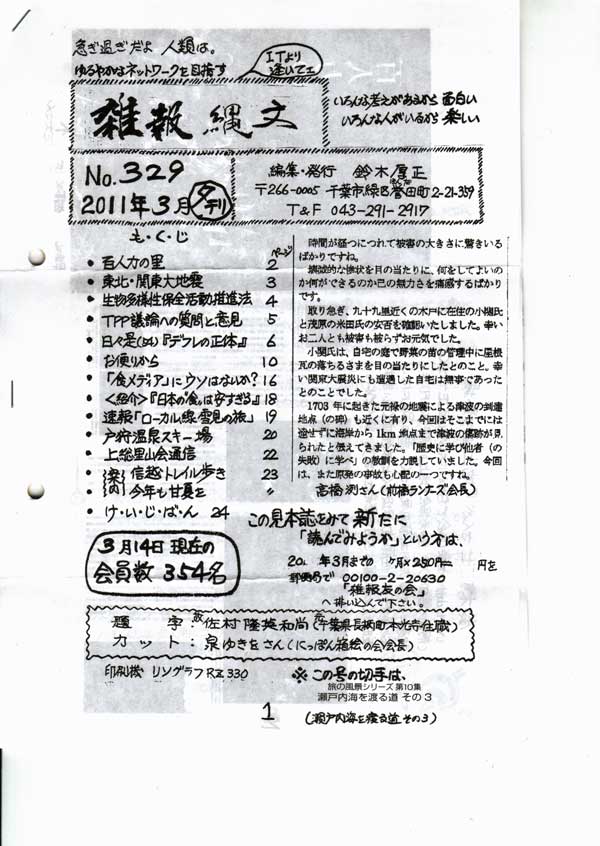 急ぎ過ぎだよ 人類は。
ゆるやかなネットワークを目指す
ITより
遅いてエ
雑報縄文
いろんな考えがあるから面白い
いろんな人がいるから楽しい
No.329
2011年3月夕刊
編集・発行 鈴木厚正
〒266-0005 千葉市緑区誉田町2-21-359
T&F 043-291-2917
も・く・じ
ページ
• 百人力の里 2
• 東北・関東大地震 3
• 生物多様性保全活動推進法 4
• TPP議論への質問と意見 5
• 日々是(54)『デフレの正体』 6
• お便りから 10
• 「食メディア」にウソはないか? 16
• <紹介>『日本の「食」は安すぎる』 18
• 速報「ローカル線雪見の旅」 19
• 戸狩温泉スキー場 20
• 上総里山会通信 22
• 信越トレイル歩き 23
• 今年も甘夏を 〃
• け・い・じ・ば・ん 24
時間が経つにつれて被害の大きさに驚きいる
ばかりですね。
壊滅的な惨状を目の当たりに、何をしてよいの
か何ができるのか己の無力さを痛感するばかり
です。
取り急ぎ、九十九里近くの木戸に在住の小関氏
と茂原の米田氏の安否を確認いたしました。幸い
お二人とも被害も被らずお元気でした。
小関氏は、自宅の庭で野菜の苗の管理中に屋根
瓦の落ちるさまを目の当たりにしたとのこと。幸
い関東大震災にも遭遇した自宅は無事であった
とのことでした。
1703年に起きた元禄の地震による津波の到達
地点(の碑)も近くに有り、今回はそこまでには
達せずに海岸から1km地点まで津波の傷跡が見
られたと伝えてきました。「歴史に学び他者(の
失敗)に学べ」の教訓を力説していました。今回
は、また原発の事故も心配の一つですね。
高橋 さん(前橋ランナーズ会長)
3月14日現在の
会員数 354名
この見本誌をみて新たに
「読んでみようか」という方は、
201 年3月までの ヶ月×250円= 円を
郵便局で 00100-2-20630
「雑報友の会」
へ払い込んで下さい。
題字:佐村隆英和尚(千葉県長柄町本光寺住職)
カット:泉ゆきをさん(にっぽん箱絵の会会長)
印刷機 リソグラフRZ330
※この号の切手は、
旅の風景シリーズ 第10集
瀬戸内海を渡る道 その3
(瀬戸内海を渡る道 その3)
1